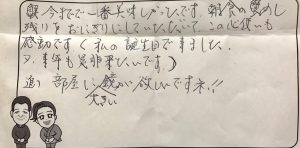 蟹今までで一番美味しかったです。朝食の蟹めし
残りをおにぎりにしていただいて、この心使いも
感動です(私の誕生日で来ました。
又、来年も是非来たいです。)
追) 部屋に大きい鏡が欲しいですネ!!